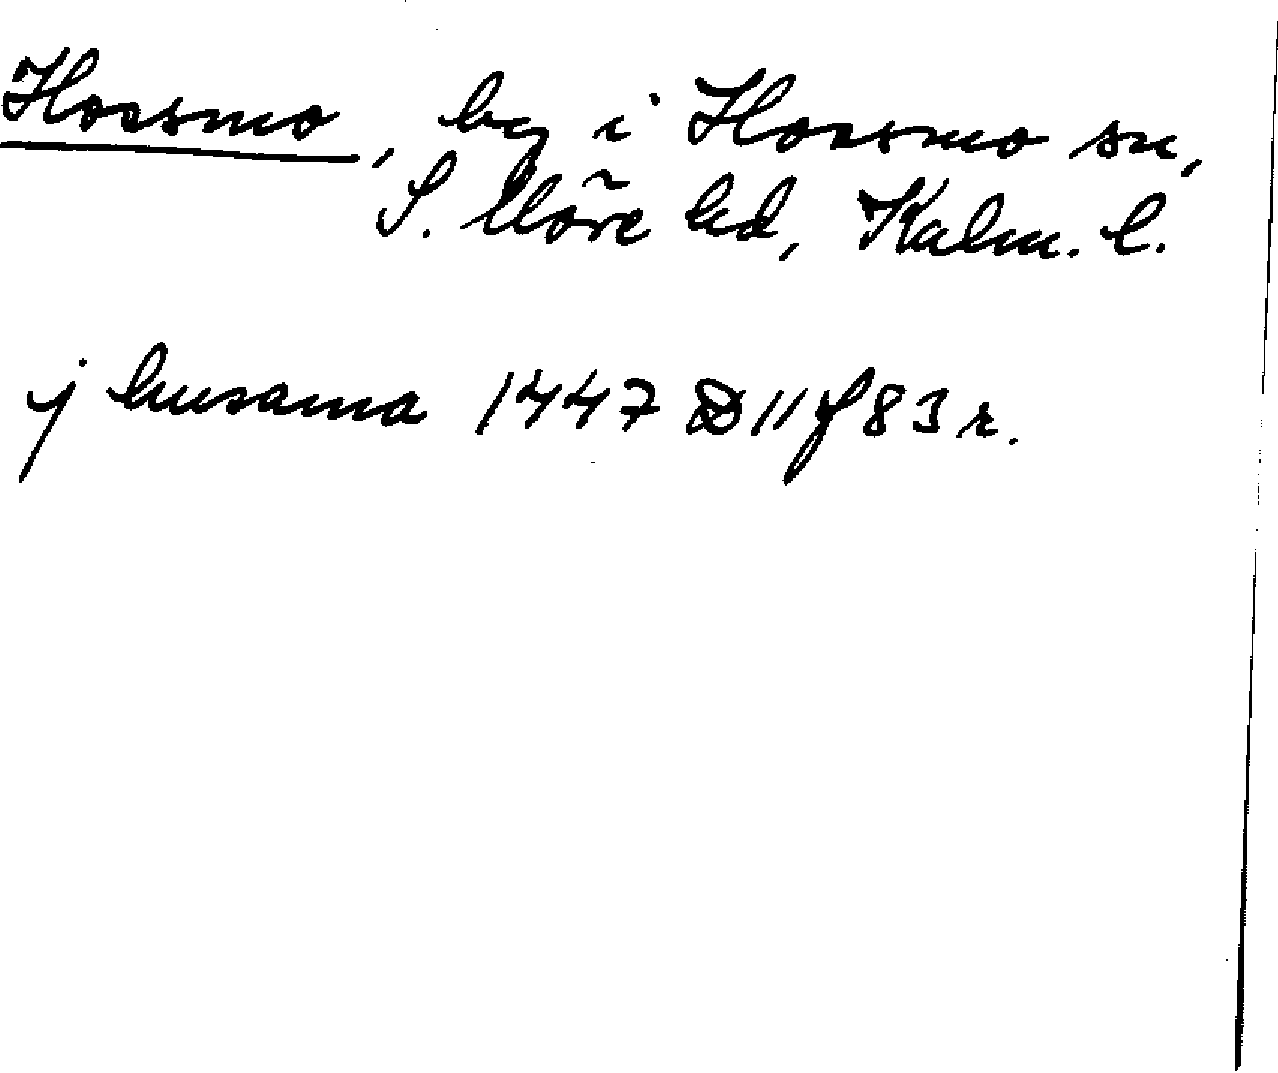 Hossmo, by i Hossmo sn,
S. Möre hd, Kalm. l.
j husama 1447 D 11 f 83 r.